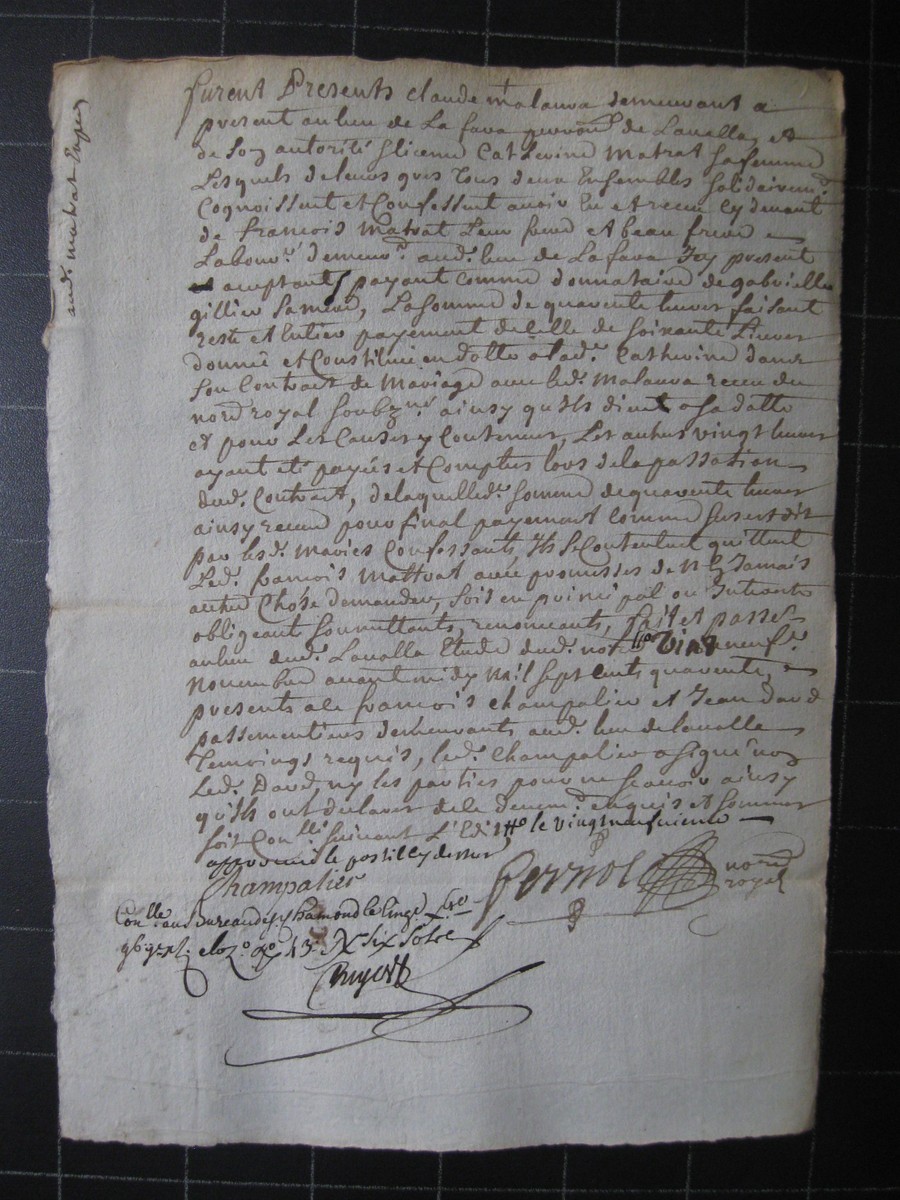 furent Presents claude malaura demeurant a
present au lieu de La fara parroisse de Lavalla, et
de Soy autorité et licence Catherine Matrat sa femme
Lesquels de leurs grés tous deux Ensembles Solidairemt
Cognoissent et Confessent avoir Eu et receu cy devant
de francois Matrat Leur frere et beau frere
Labourr demeurt aud. lieu de La fara Icy present
acceptant, payant comme donnataire de gabrielle
gillier Sa mere, La somme de quarente livres faisant
reste et Entier payement de Celle de soixante Livres
donnée et Constituée en dotte a lad. Catherine dans
son Contract de Mariage avec led. Malaura receu du
nore royal soubzné ainsy qu'ils dirent a sa datte
et pour Les Causes y Contenues, Les autres vingt livres
ayant eté payées et Comptées lors de la passation
dud. Contract, de laquelle d. somme de quarente livres
ainsy receue pour final payement Comme sus est dit
par lesd. mariés Confessants, Ils se Contentent quittent
Led. francois Mattrat avec promesses de N'en Jamais
autre Chose demander, soit en principal ou Interets
obligeant soumettants, renonceants, fait et passé
au lieu dud. Lavalla Etude dud. not.
Novembre avant midy Mil sept cents quarente,
presents a Ce francois champalier et Jean David
passementiers demeurants aud. lieu de Lavalla
Temoings requis, led. Champalier a signé non
Led. David, ny les parties pour ne scavoir ainsy
qu'ils ont declarés de Ce deuemt enquis et sommés
soit Conllé suivant L'Edit, le vingt neufvieme
approuvé le postille cy dessus
Champalier
Pernol nore
royal
Conllé au Bureau de st Chamond le cinqe Xbre
six sols
aud. matrat Expedié